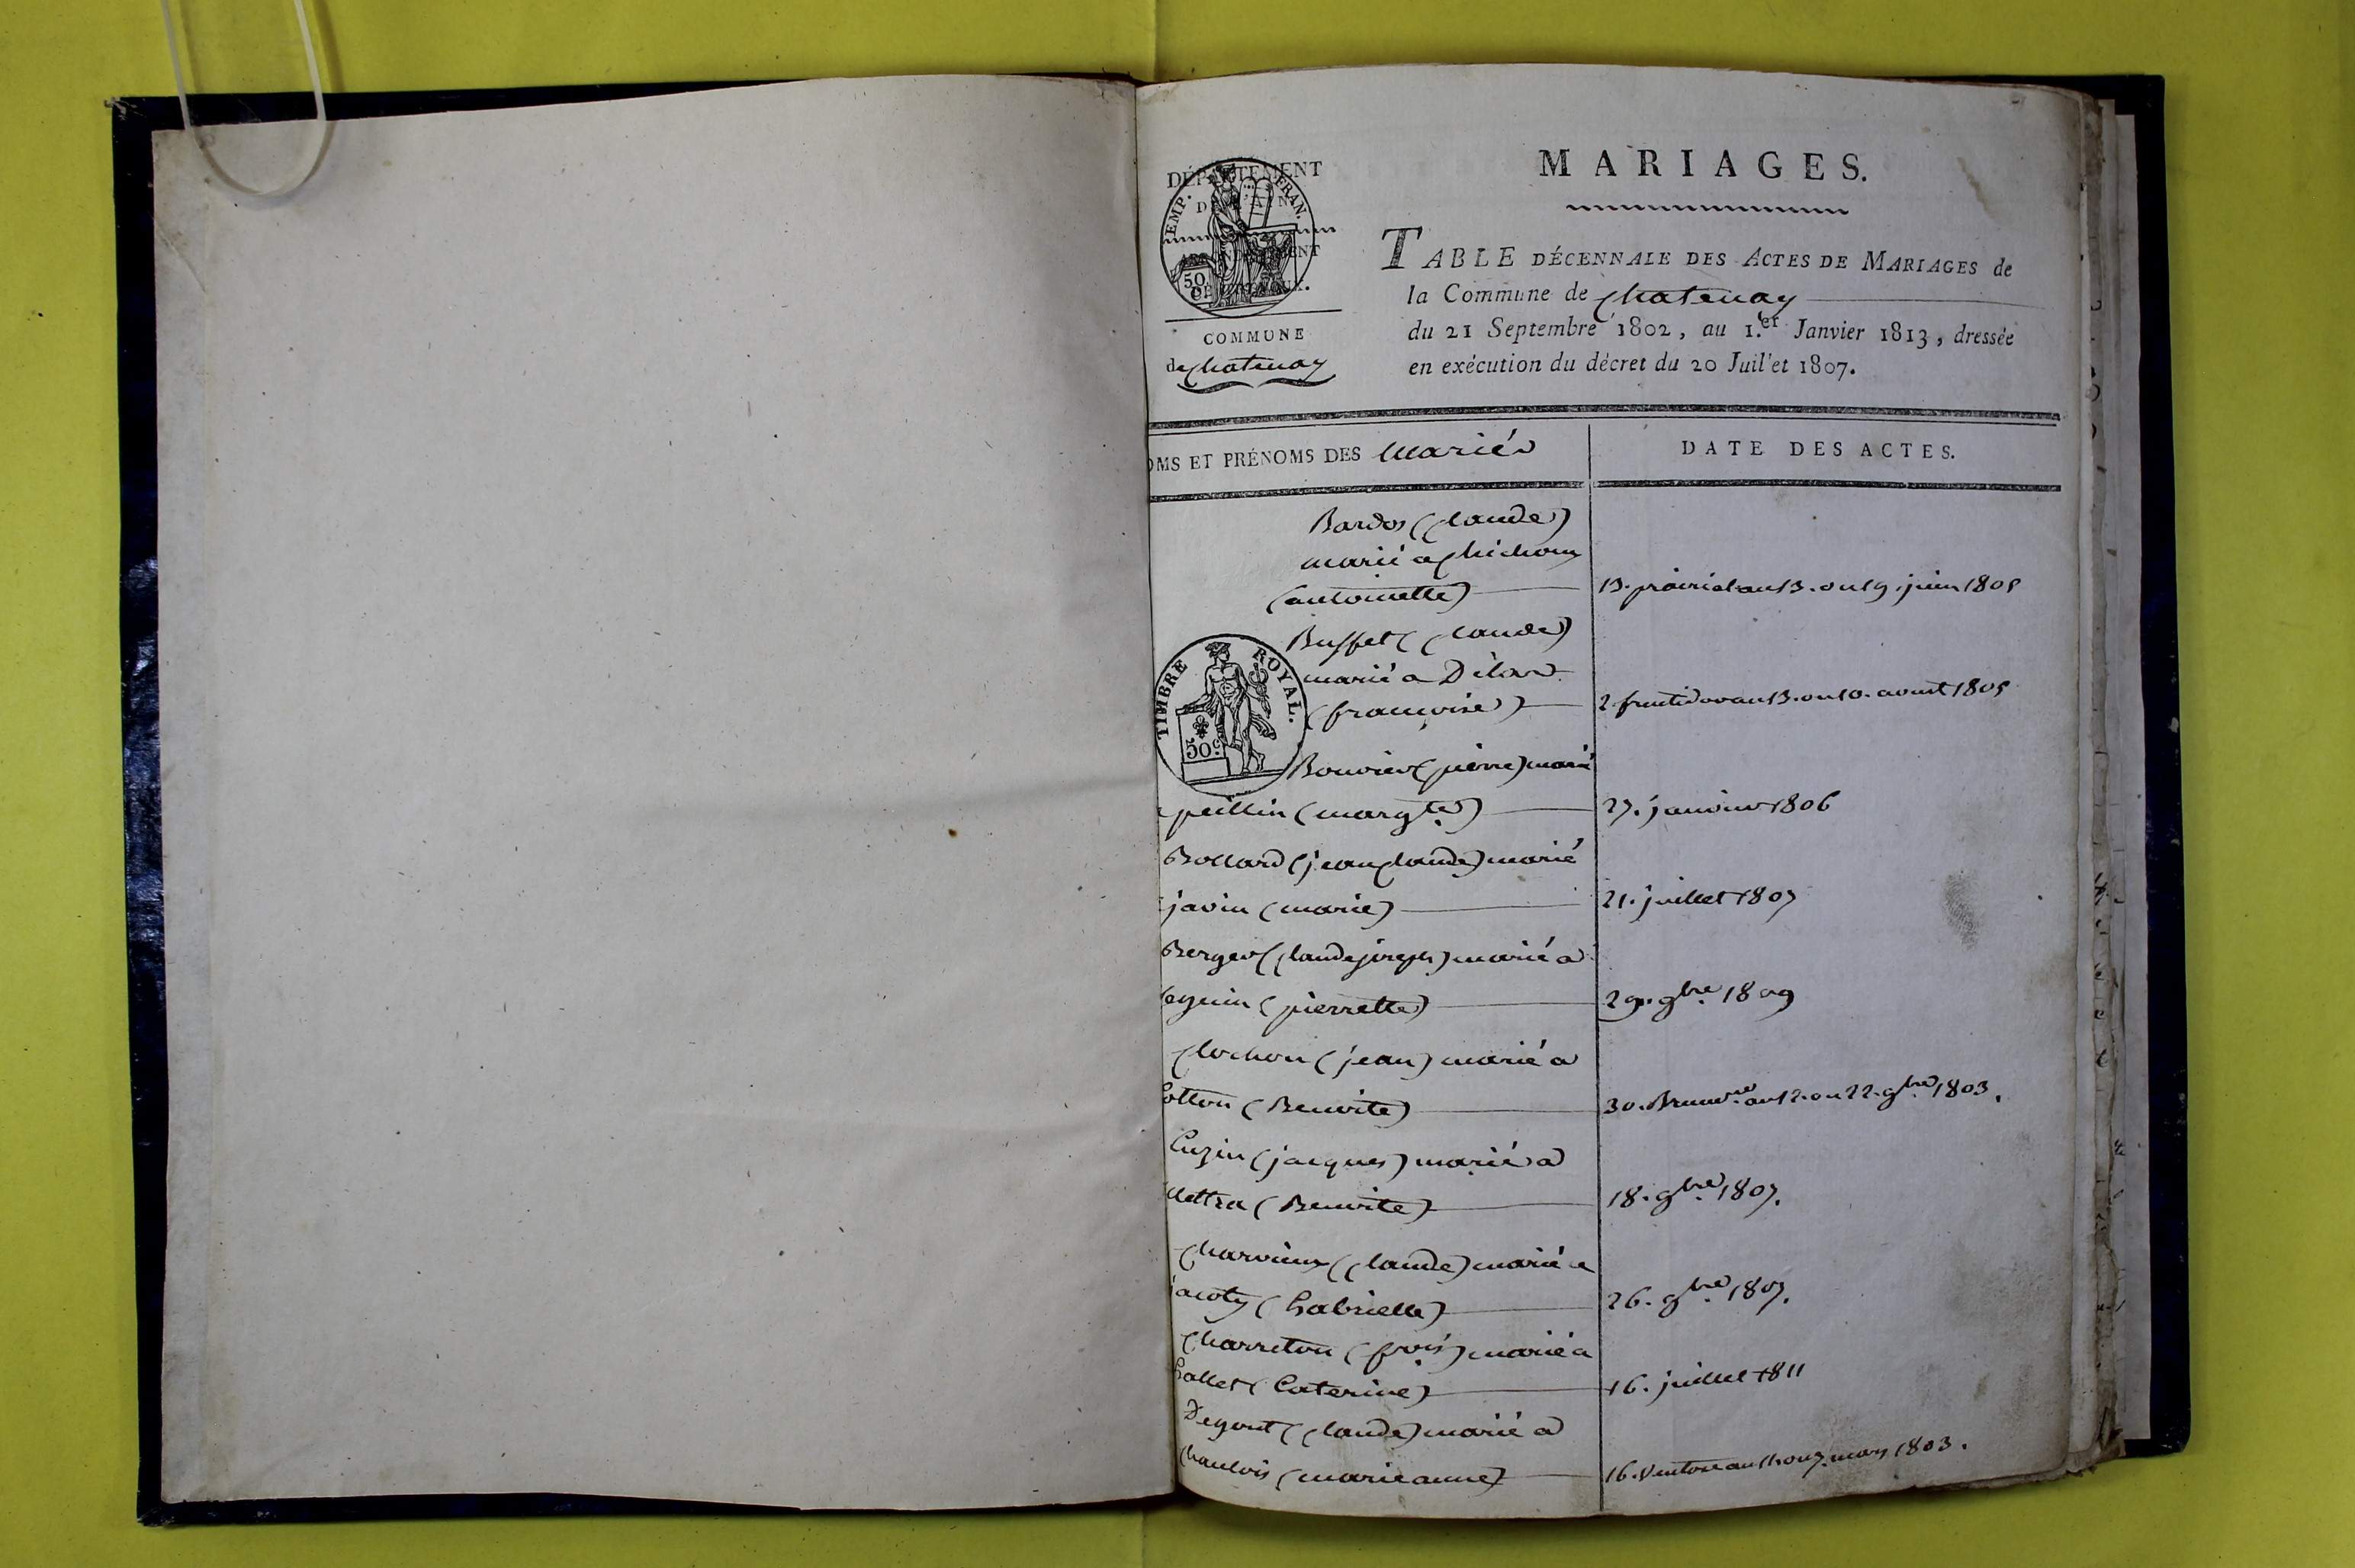 MARIAGES.
DÉPARTEMENT
DE L'AIN
EMP. FRAN.
50
ARRONDISSEMENT
DE TRÉVOUX.
COMMUNE
de Chatenay
TABLE DÉCENNALE DES ACTES DE MARIAGES de
la Commune de Chatenay
du 21 Septembre 1802, au 1.er Janvier 1813, dressée
en exécution du décret du 20 Juillet 1807.
OMS ET PRÉNOMS DES Mariés
DATE DES ACTES.
Bardos (Claude)
marié a
(antoinette)
prairial an 13. ou juin 1805
Buffet (Claude)
marié a
(françoise)
2 fructidor an 13. ou aoust 1805
TIMBRE ROYAL.
50c
Bouvier (pierre) marié
peillin (margte)
27. janvier 1806
Bollard (jean Claude) marié
javin (marie)
21. juillet 1807
Berger (Claude joseph) marié a
(pierrette)
29. 9bre 1809
Clochon (jean) marié a
(Benoite)
30. Brumre an 12. ou 22. 9bre 1803.
Cuzin (jacques) marié a
(Benoite)
18. 9bre 1807.
(Claude) marié a
(Gabrielle)
26. 9bre 1807.
Charreton (frois) marié a
(Caterine)
16. juillet 1811
Degout (Claude) marié a
(marie anne)
16. Ventose an 11. ou 7. mars 1803.